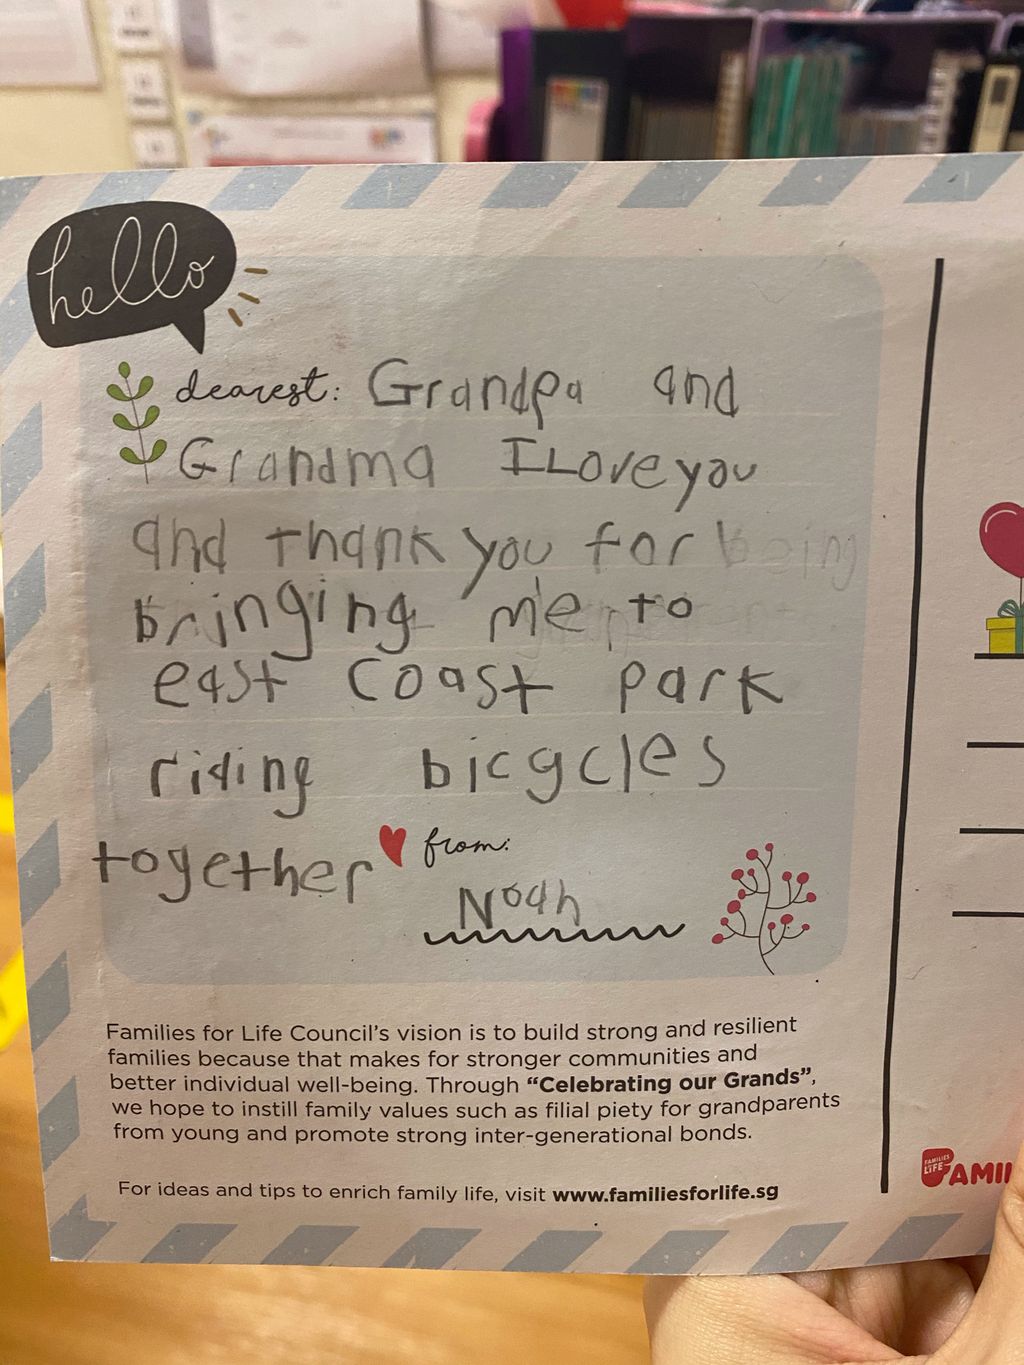 hello
dearest: Grandpa and
Grandma I Love you
and thank you for being
bringing me to
east coast park
riding bicycles
together from:
Noah
Families for Life Council's vision is to build strong and resilient
families because that makes for stronger communities and
better individual well-being. Through "Celebrating our Grands",
we hope to instill family values such as filial piety for grandparents
from young and promote strong inter-generational bonds.
For ideas and tips to enrich family life, visit www.familiesforlife.sg
FAMILIES
LIFE